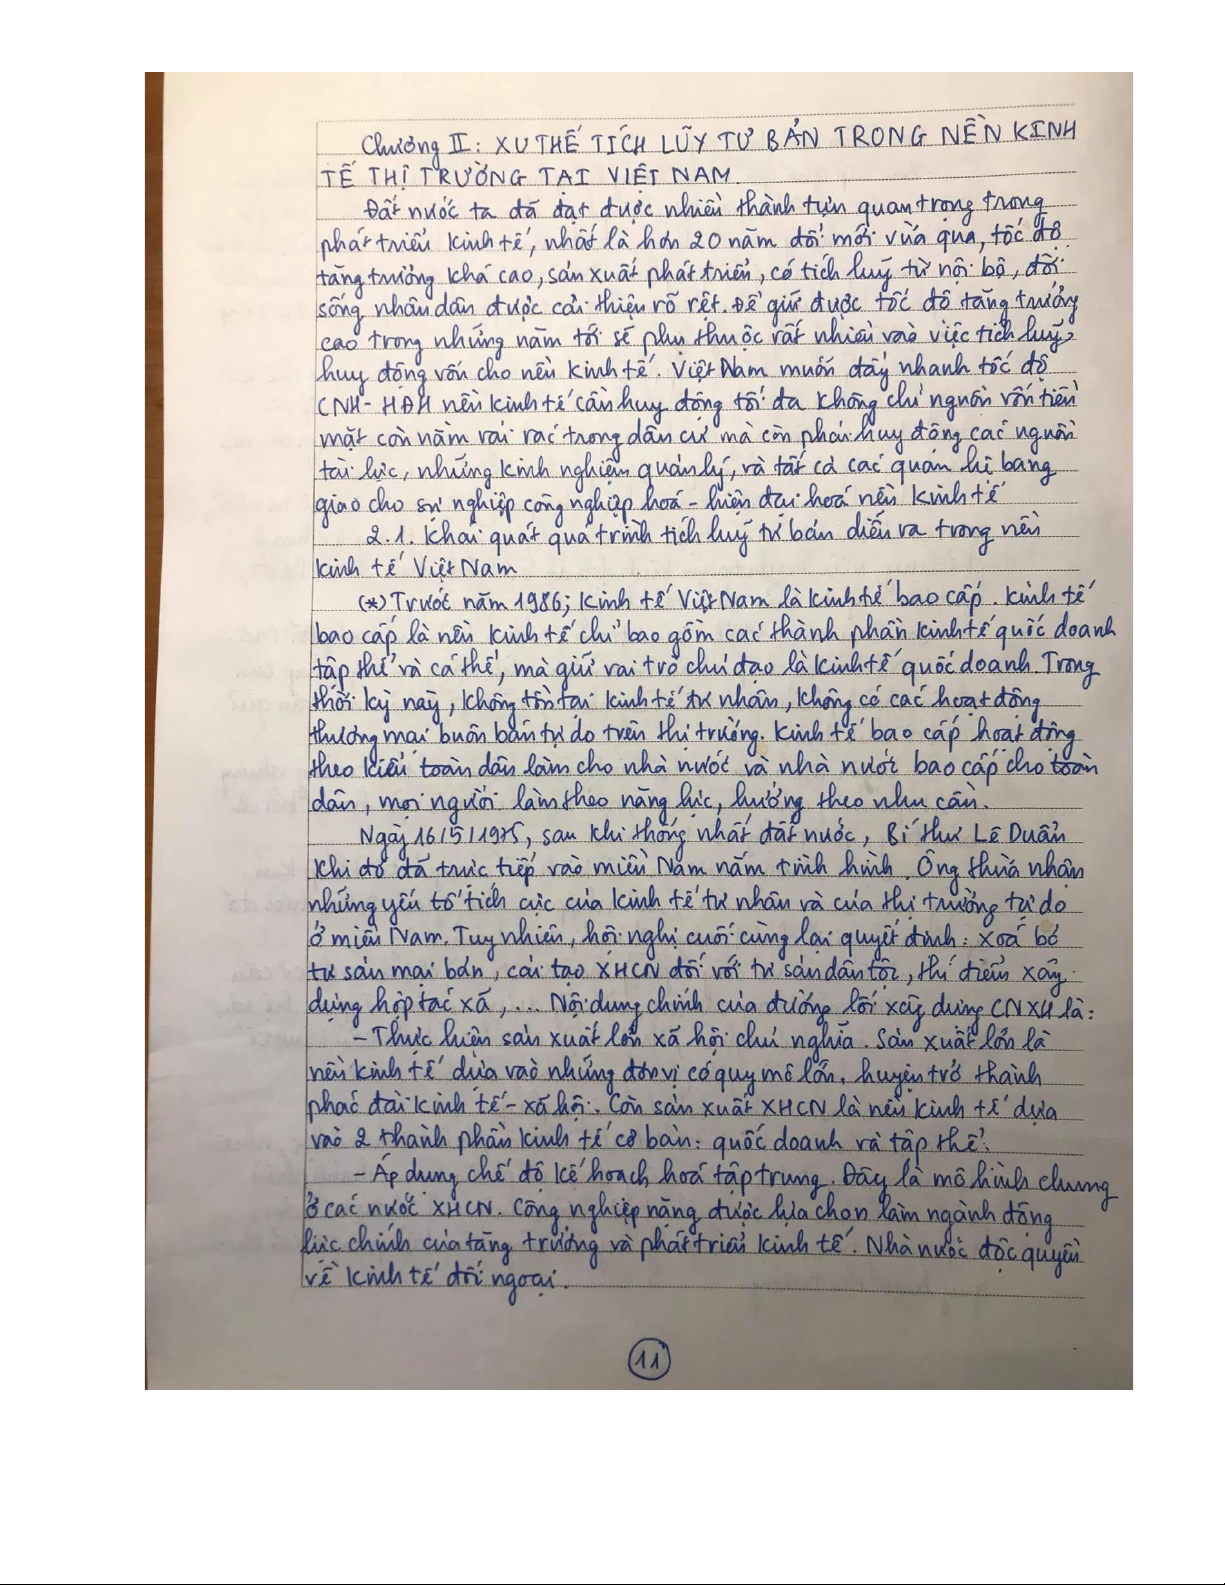 Chương II: XU THẾ TÍCH LŨY TƯ BẢN TRONG NỀN KINH
TẾ THỊ TRƯỜNG TẠI VIỆT NAM
Đất nước ta đã đạt được nhiều thành tựu quan trọng trong
phát triển kinh tế, nhất là hơn 20 năm đổi mới vừa qua, tốc độ
tăng trưởng khá cao, sản xuất phát triển, có tích luỹ từ nội bộ, đời
sống nhân dân được cải thiện rõ rệt. Để giữ được tốc độ tăng trưởng
cao trong những năm tới sẽ phụ thuộc rất nhiều vào việc tích luỹ,
huy động vốn cho nền kinh tế. Việt Nam muốn đẩy nhanh tốc độ
CNH - HĐH nền kinh tế cần huy động tối đa không chỉ nguồn vốn tiền
mặt còn nằm rải rác trong dân cư mà còn phải huy động các nguồn
tài lực, những kinh nghiệm quản lý, và tất cả các quan hệ bang
giao cho sự nghiệp công nghiệp hoá - hiện đại hoá nền kinh tế
2.1. Khái quát quá trình tích luỹ tư bản diễn ra trong nền
kinh tế Việt Nam
(*) Trước năm 1986; kinh tế Việt Nam là kinh tế bao cấp. Kinh tế
bao cấp là nền kinh tế chỉ bao gồm các thành phần kinh tế quốc doanh
tập thể và cá thể, mà giữ vai trò chủ đạo là kinh tế quốc doanh. Trong
thời kỳ này, không tồn tại kinh tế tư nhân, không có các hoạt động
thương mại buôn bán tự do trên thị trường. Kinh tế bao cấp hoạt động
theo kiểu toàn dân làm cho nhà nước và nhà nước bao cấp cho toàn
dân, mọi người làm theo năng lực, hưởng theo nhu cầu.
Ngày 16/5/1975, sau khi thống nhất đất nước, Bí thư Lê Duẩn
khi đó đã trực tiếp vào miền Nam nắm tình hình. Ông thừa nhận
những yếu tố tích cực của kinh tế tư nhân và của thị trường tự do
ở miền Nam. Tuy nhiên, hội nghị cuối cùng lại quyết định: Xoá bỏ
tư sản mại bản, cải tạo XHCN đối với tư sản dân tộc, thí điểm xây
dựng hợp tác xã, ... Nội dung chính của đường lối xây dựng CNXH là:
- Thực hiện sản xuất lớn xã hội chủ nghĩa. Sản xuất lớn là
nền kinh tế dựa vào những đơn vị có quy mô lớn, huyện trở thành
pháo đài kinh tế - xã hội. Còn sản xuất XHCN là nền kinh tế dựa
vào 2 thành phần kinh tế cơ bản: quốc doanh và tập thể.
- Áp dụng chế độ kế hoạch hoá tập trung. Đây là mô hình chung
ở các nước XHCN. Công nghiệp nặng được lựa chọn làm ngành động
lực chính của tăng trưởng và phát triển kinh tế. Nhà nước độc quyền
về kinh tế đối ngoại.
11